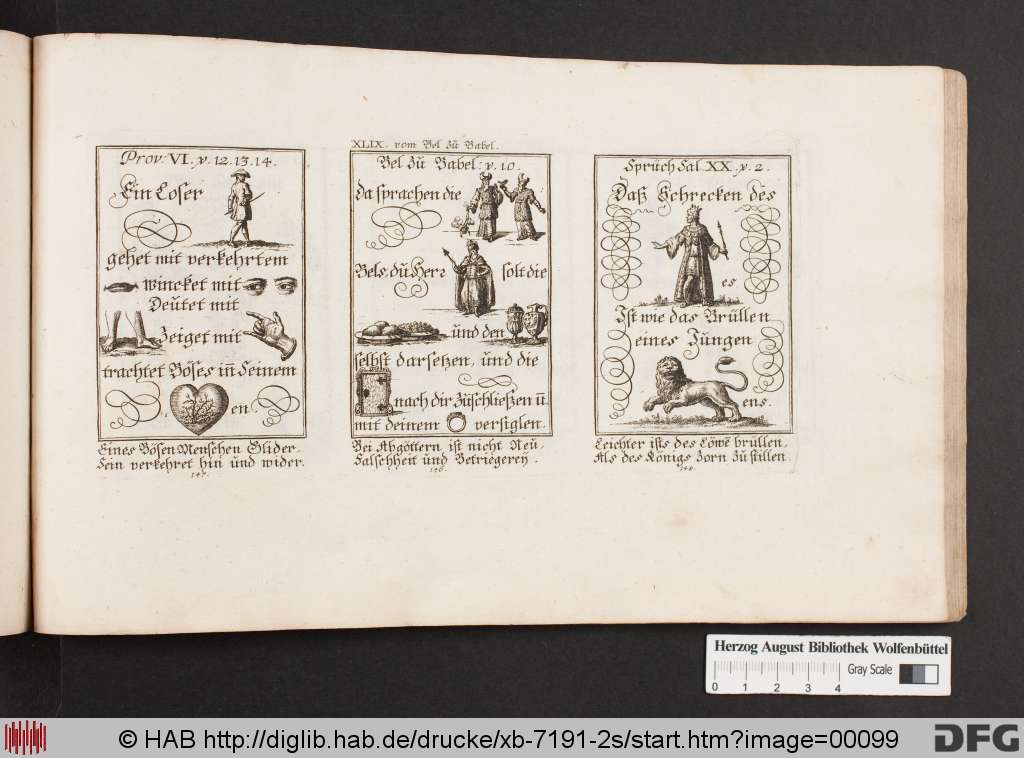 Prov: VI. v. 12. 13. 14.
Ein Loser
gehet mit verkehrtem
wincket mit
Deutet mit
Zeiget mit
trachtet Böses in̄ seinem
en
Eines Bösen Menschen Glider,
Sein verkehret hin und wider.
147.
XLIX. vom Bel zu Babel.
Bel zu Babel: v. 10.
Da sprachen die
Bels, du Herr solt die
und den
selbst darsetzen, und die
nach dir zuschließen un̄
mit deinem versiglen.
Bei Abgöttern ist nicht Neu,
Falschheit und Betriegerey.
Spruch Sal. XX. v. 2.
Daß Schrecken des
es
Ist wie das Brüllen
eines Jungen
ens.
Leichter ists des Löwē brüllen,
Als des Königs Zorn zu stillen.
Herzog August Bibliothek Wolfenbüttel
Gray Scale
0 1 2 3 4
© HAB http://diglib.hab.de/drucke/xb-7191-2s/start.htm?image=00099
DFG